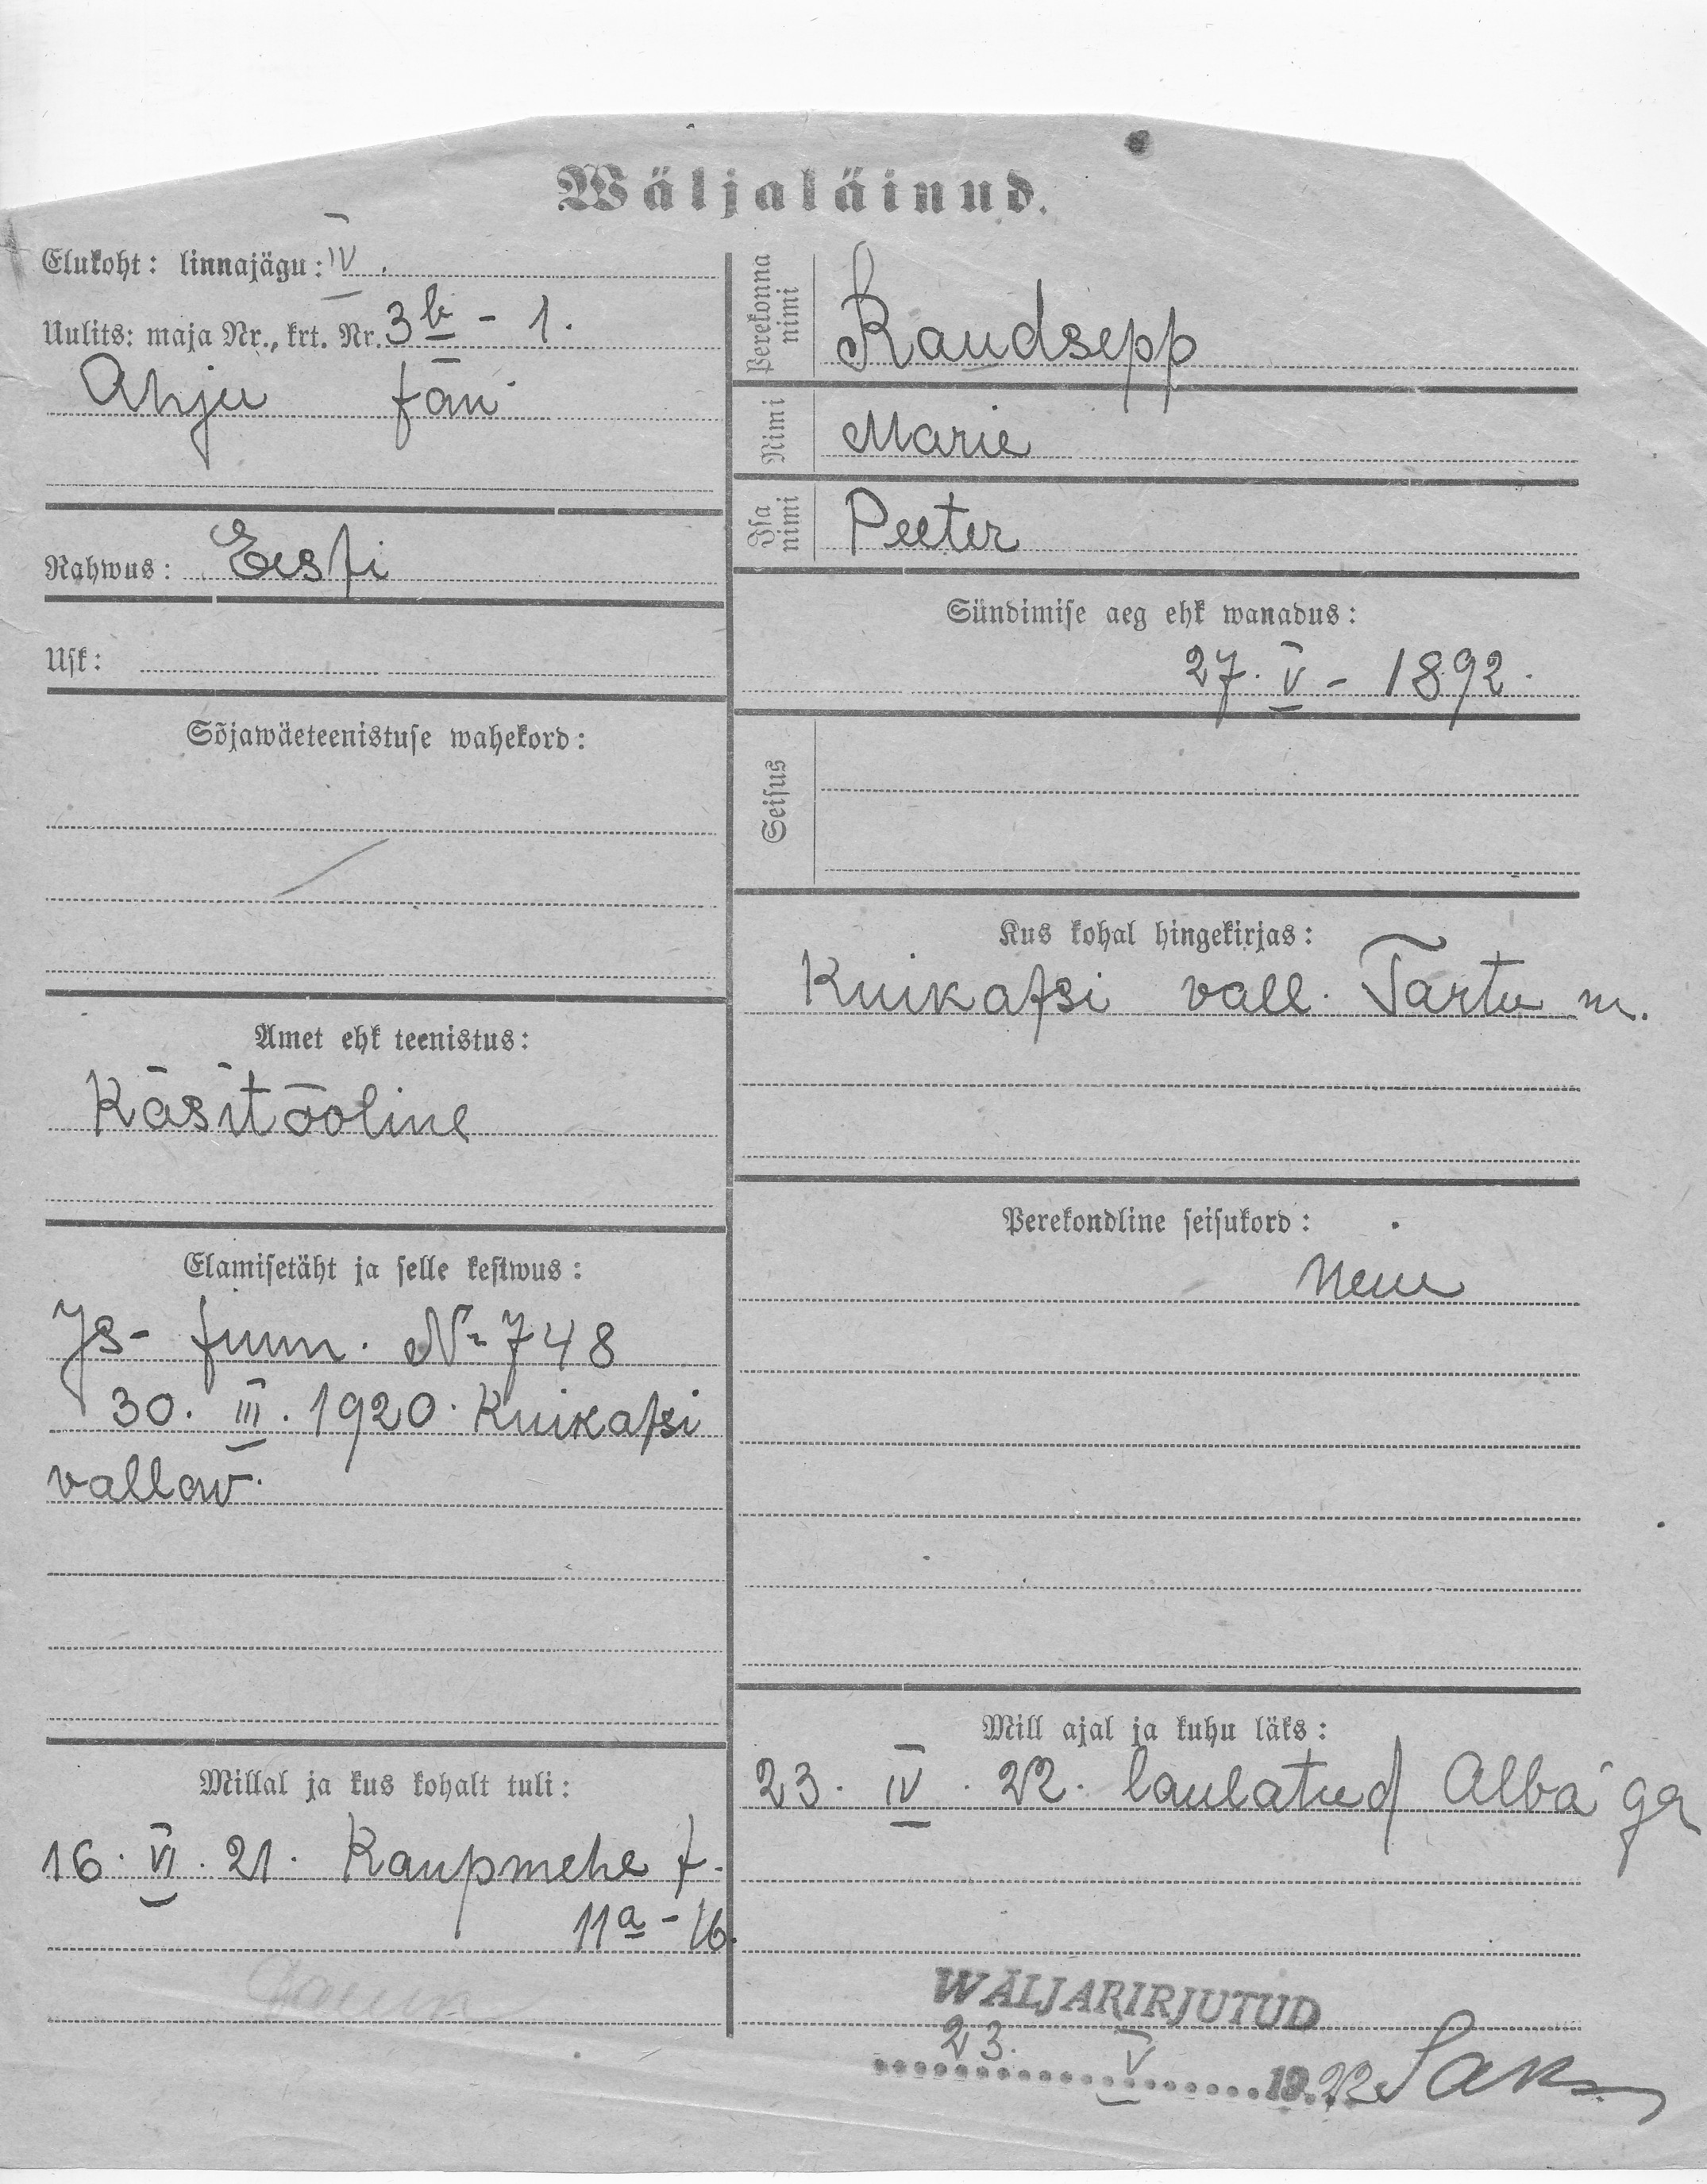 Wäljaläinud.
Elukoht: linnajägu: IV.
Uulits: maja Nr., krt. Nr. 3b - 1.
Ahju tän
Rahwus: Eesti
Usk:
Sõjawäeteenistuse wahekord:
Amet ehk teenistus:
Käsitööline
Elamisetäht ja selle kestwus:
Js- tunn. № 748
30. III. 1920. Kuikatsi
vallav.
Millal ja kus kohalt tuli:
16. VI. 21. Kaupmehe t.
11a - 16.
Perekonna nimi
Raudsepp
Nimi
Marie
Isa nimi
Peeter
Sündimise aeg ehk wanadus:
27. V - 1892.
Seisus
Kus kohal hingekirjas:
Kuikatsi vall. Tartu m.
Perekondline seisukord:
Mill ajal ja kuhu läks:
23. IV. 22. laulatud Alba'ga
WÄLJARIRJUTUD
23. V 1922 Saks